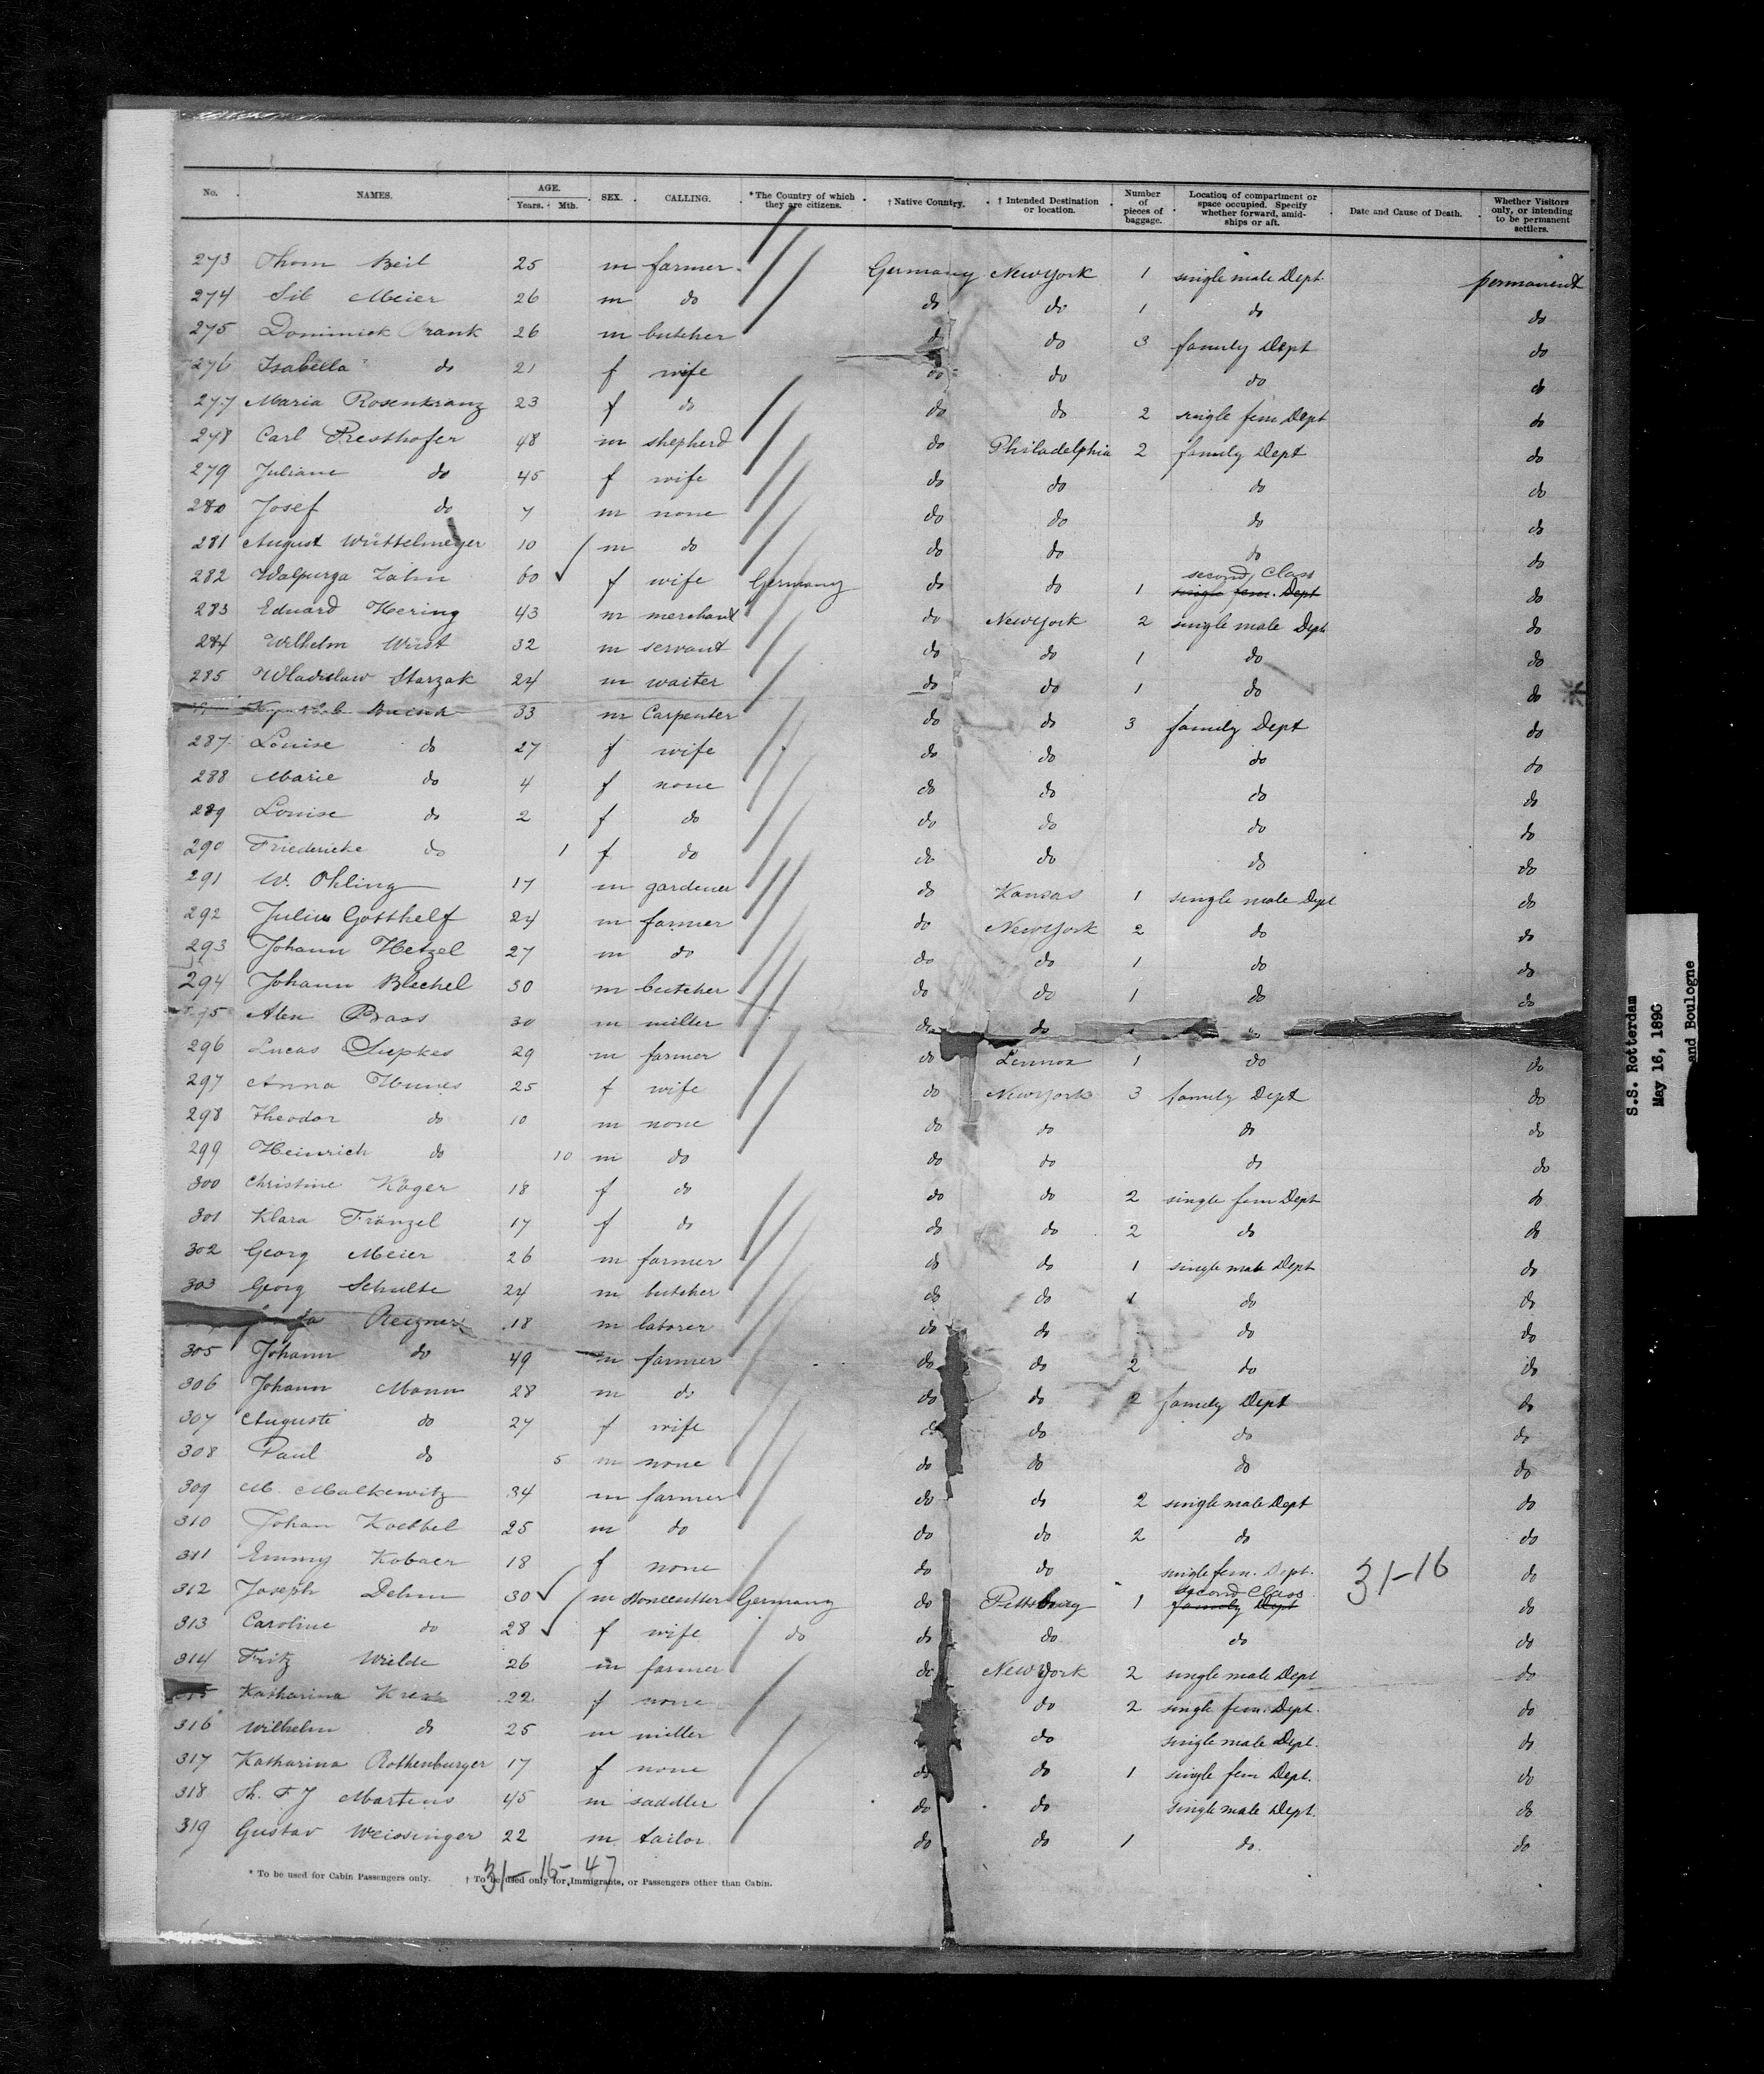 No. NAMES. AGE. Years. Mth. SEX. CALLING. * The Country of which they are citizens. † Native Country. † Intended Destination or location. Number of pieces of baggage. Location of compartment or space occupied. Specify whether forward, amidships or aft. Date and Cause of Death. Whether Visitors only, or intending to be permanent settlers.
273 Thom Beil 25 m farmer Germany New York 1 single male Dept permanent
274 Sib Meier 26 m do do do 1 do do
275 Dominick Frank 26 m butcher do do 3 family Dept do
276 Isabella do 21 f wife do do do do
277 Maria Rosenkranz 23 f do do do 2 single fem Dept do
278 Carl Presthofer 48 m shepherd do Philadelphia 2 family Dept do
279 Juliane do 45 f wife do do do do
280 Josef do 7 m none do do do do
281 August Wüttelmeyer 10 m do do do do do
282 Walpurga Zahn 60 f wife Germany do do 1 second Class single fem. Dept do
283 Eduard Hering 43 m merchant do New York 2 single male Dept do
284 Wilhelm Wüst 32 m servant do do 1 do do
285 Wladislaw Starzak 24 m waiter do do 1 do do
33 m Carpenter do do 3 family Dept do
287 Louise do 27 f wife do do do do
288 Marie do 4 f none do do do do
289 Louise do 2 f do do do do do
290 Friedericke do 1 f do do do do do
291 W. Ohling 17 m gardener do Kansas 1 single male Dept do
292 Julius Gotthelf 24 m farmer do New York 2 do do
293 Johann Hetzel 27 m do do do 1 do do
294 Johann Blechel 30 m butcher do do 1 do do
Alex Bass 30 m miller do do
296 Lucas Siepkes 29 m farmer do Lennox 1 do do
297 Anna Hunes 25 f wife do New York 3 family Dept do
298 Theodor do 10 m none do do do do
299 Heinrich do 10 m do do do do do
300 Christine Köger 18 f do do do 2 single fem Dept do
301 Klara Fränzel 17 f do do do 2 do do
302 Georg Meier 26 m farmer do do 1 single male Dept do
303 Georg Schulte 24 m butcher do do 1 do do
18 m laborer do do do do
305 Johann do 49 m farmer do do 2 do do
306 Johann Mann 28 m do do do 2 family Dept do
307 Auguste do 27 f wife do do do do
308 Paul do 5 m none do do do do
309 M. Malkewitz 34 m farmer do do 2 single male Dept do
310 Johan Koebbel 25 m do do do 2 do do
311 Emmy Kobaer 18 f none do do single fem. Dept. 31-16 do
312 Joseph Dehm 30 m stonecutter Germany do Pittsburg 1 second Class family Dept do
313 Caroline do 28 f wife do do do do do
314 Fritz Wielde 26 m farmer do New York 2 single male Dept do
Katharina Kress 22 f none do 2 single fem. Dept. do
316 Wilhelm do 25 m miller do single male Dept. do
317 Katharina Rothenburger 17 f none do do 1 single fem Dept. do
318 Th. F J Martens 45 m saddler do do single male Dept. do
319 Gustav Weissinger 22 m tailor do do 1 do do
* To be used for Cabin Passengers only. † To be used only for Immigrants, or Passengers other than Cabin.
31-16-47
S.S. Rotterdam
May 16, 1896
and Boulogne